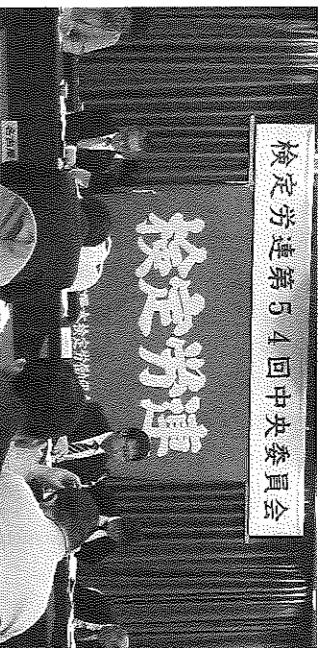 検定労連第54回中央委員会
検定労連